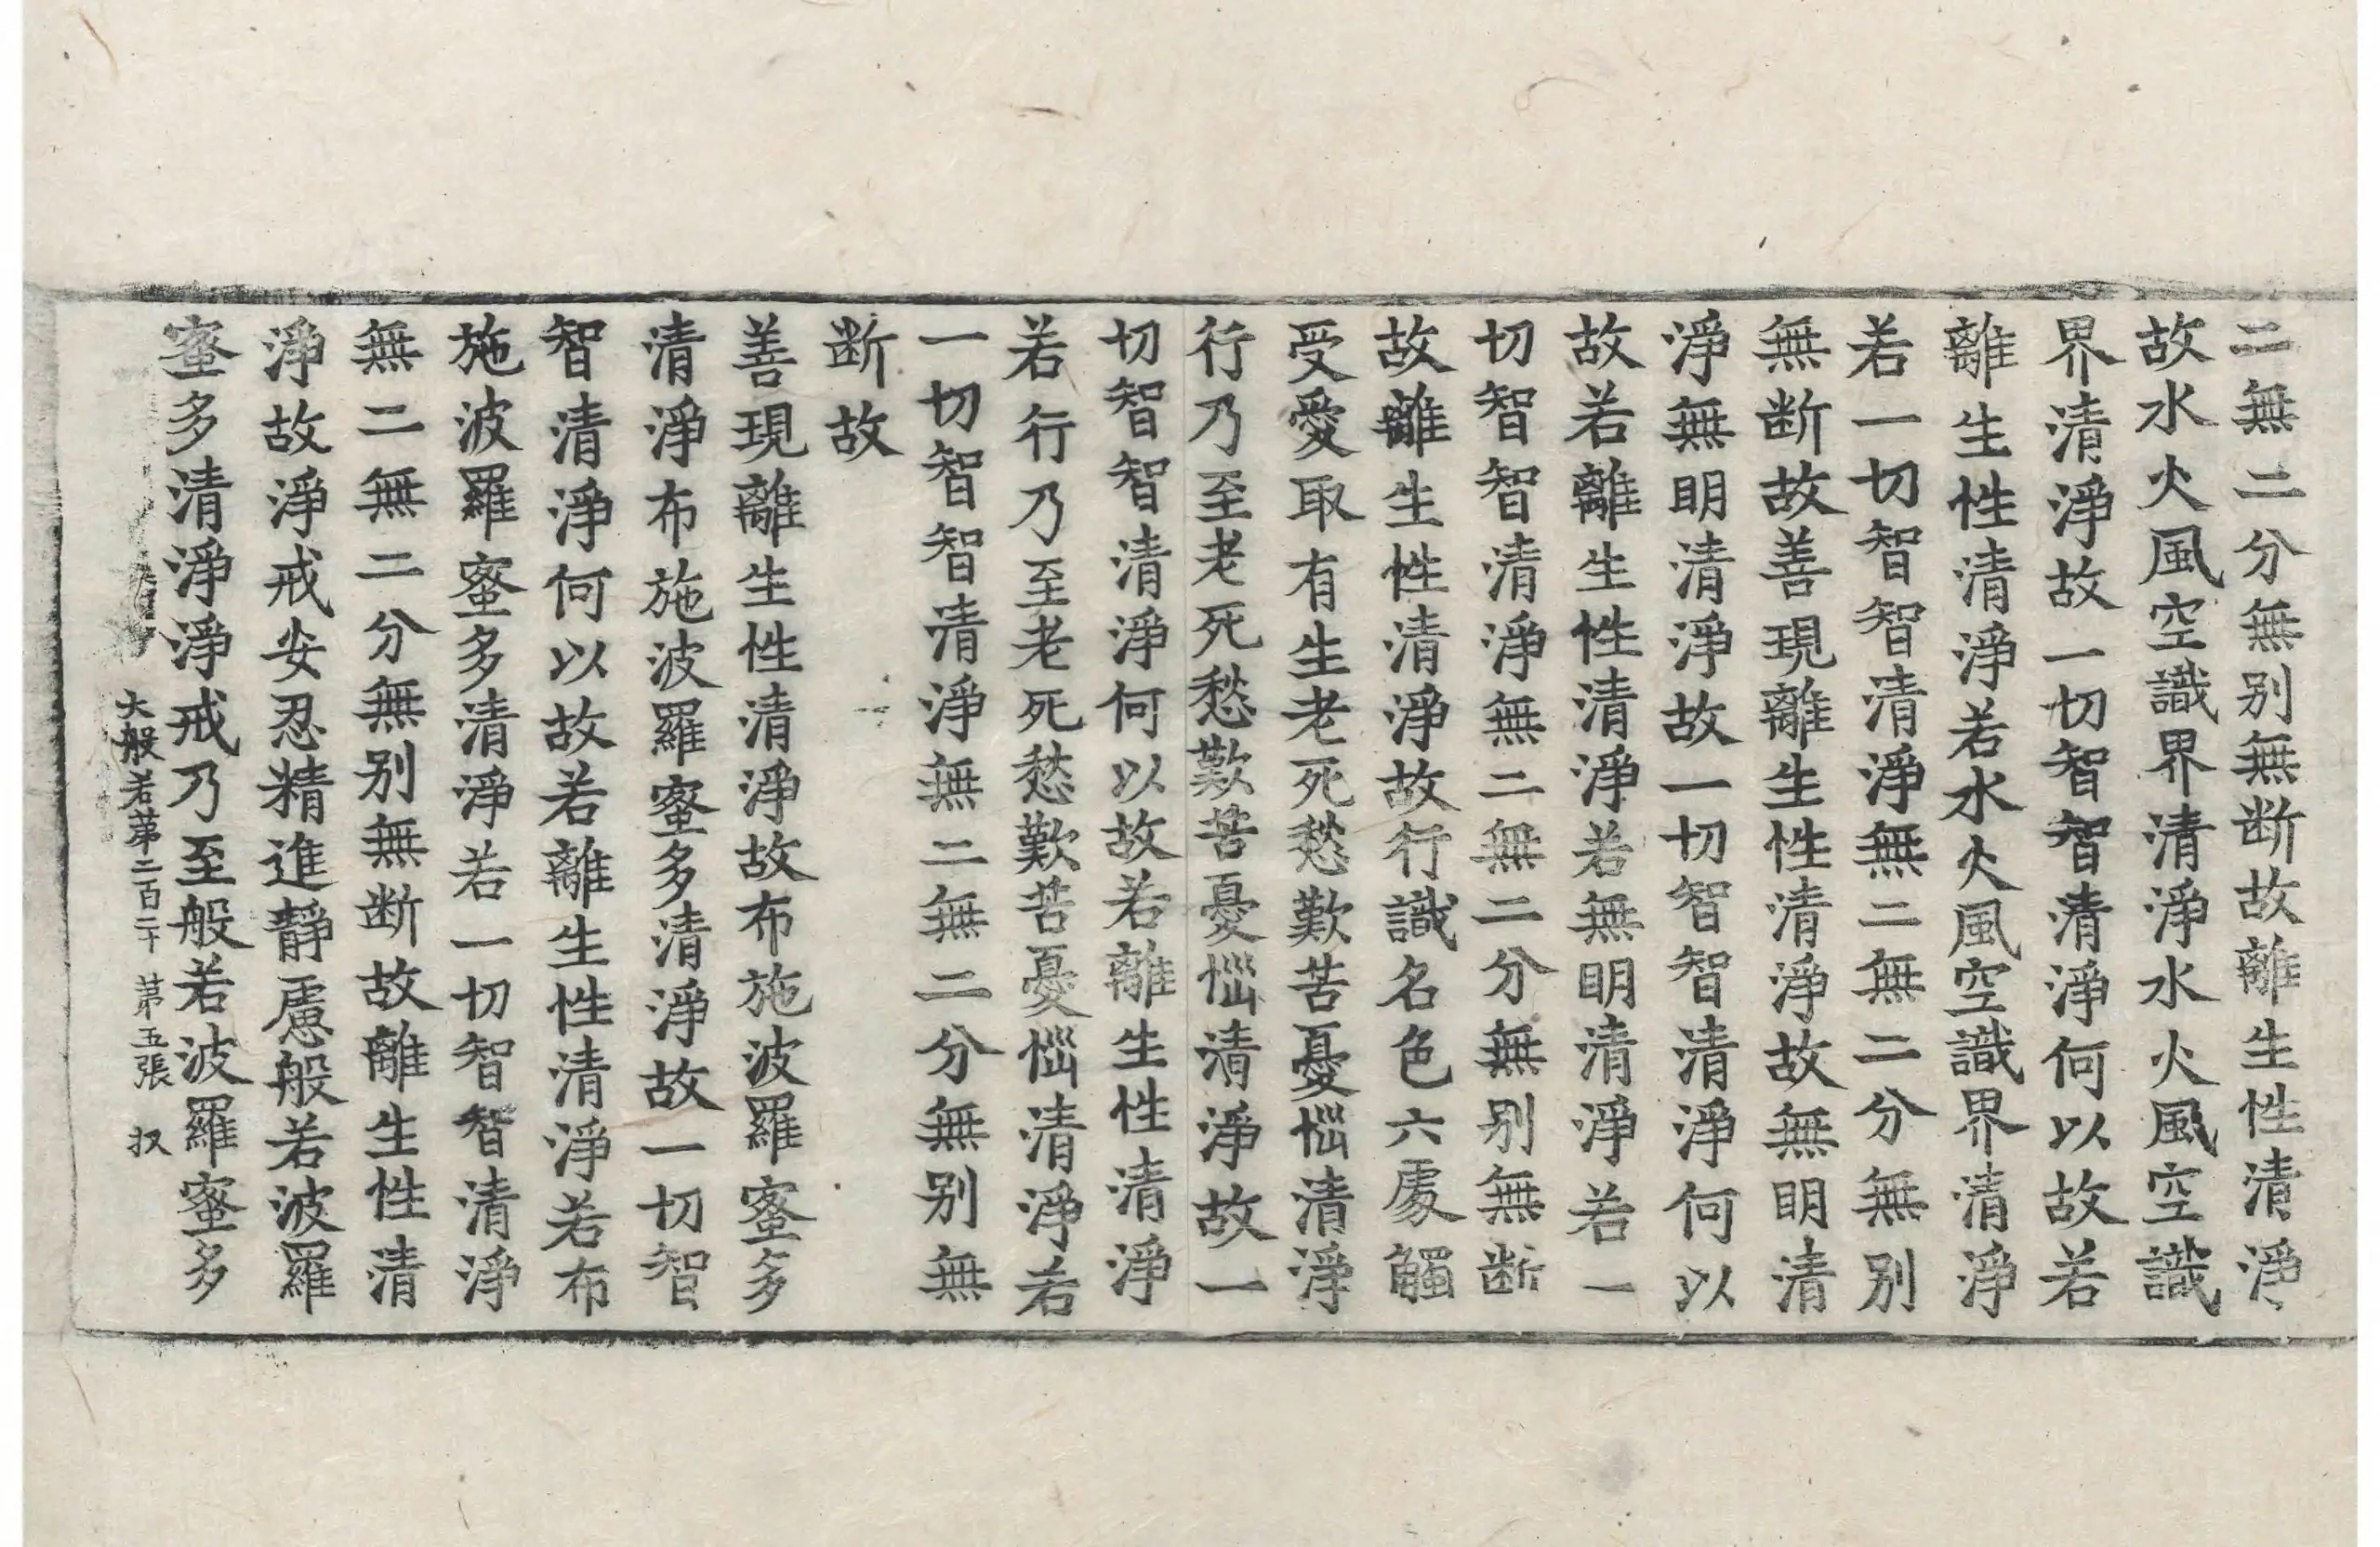 二無二分無别無断故離生性清淨
故水火風空識界清淨水火風空識
界清淨故一切智智清淨何以故若
離生性清淨若水火風空識界清淨
若一切智智清淨無二無二分無别
無断故善現離生性清淨故無明清
淨無明清淨故一切智智清淨何以
故若離生性清淨若無明清淨若一
切智智清淨無二無二分無别無断
故離生性清淨故行識名色六處觸
受愛取有生老死愁歎苦憂惱清淨
行乃至老死愁歎苦憂惱清淨故一
切智智清淨何以故若離生性清淨
若行乃至老死愁歎苦憂惱清淨若
一切智智清淨無二無二分無别無
断故
善現離生性清淨故布施波羅蜜多
清淨布施波羅蜜多清淨故一切智
智清淨何以故若離生性清淨若布
施波羅蜜多清淨若一切智智清淨
無二無二分無别無断故離生性清
淨故淨戒安忍精進靜慮般若波羅
蜜多清淨淨戒乃至般若波羅蜜多
大般若第二百二十 第五張